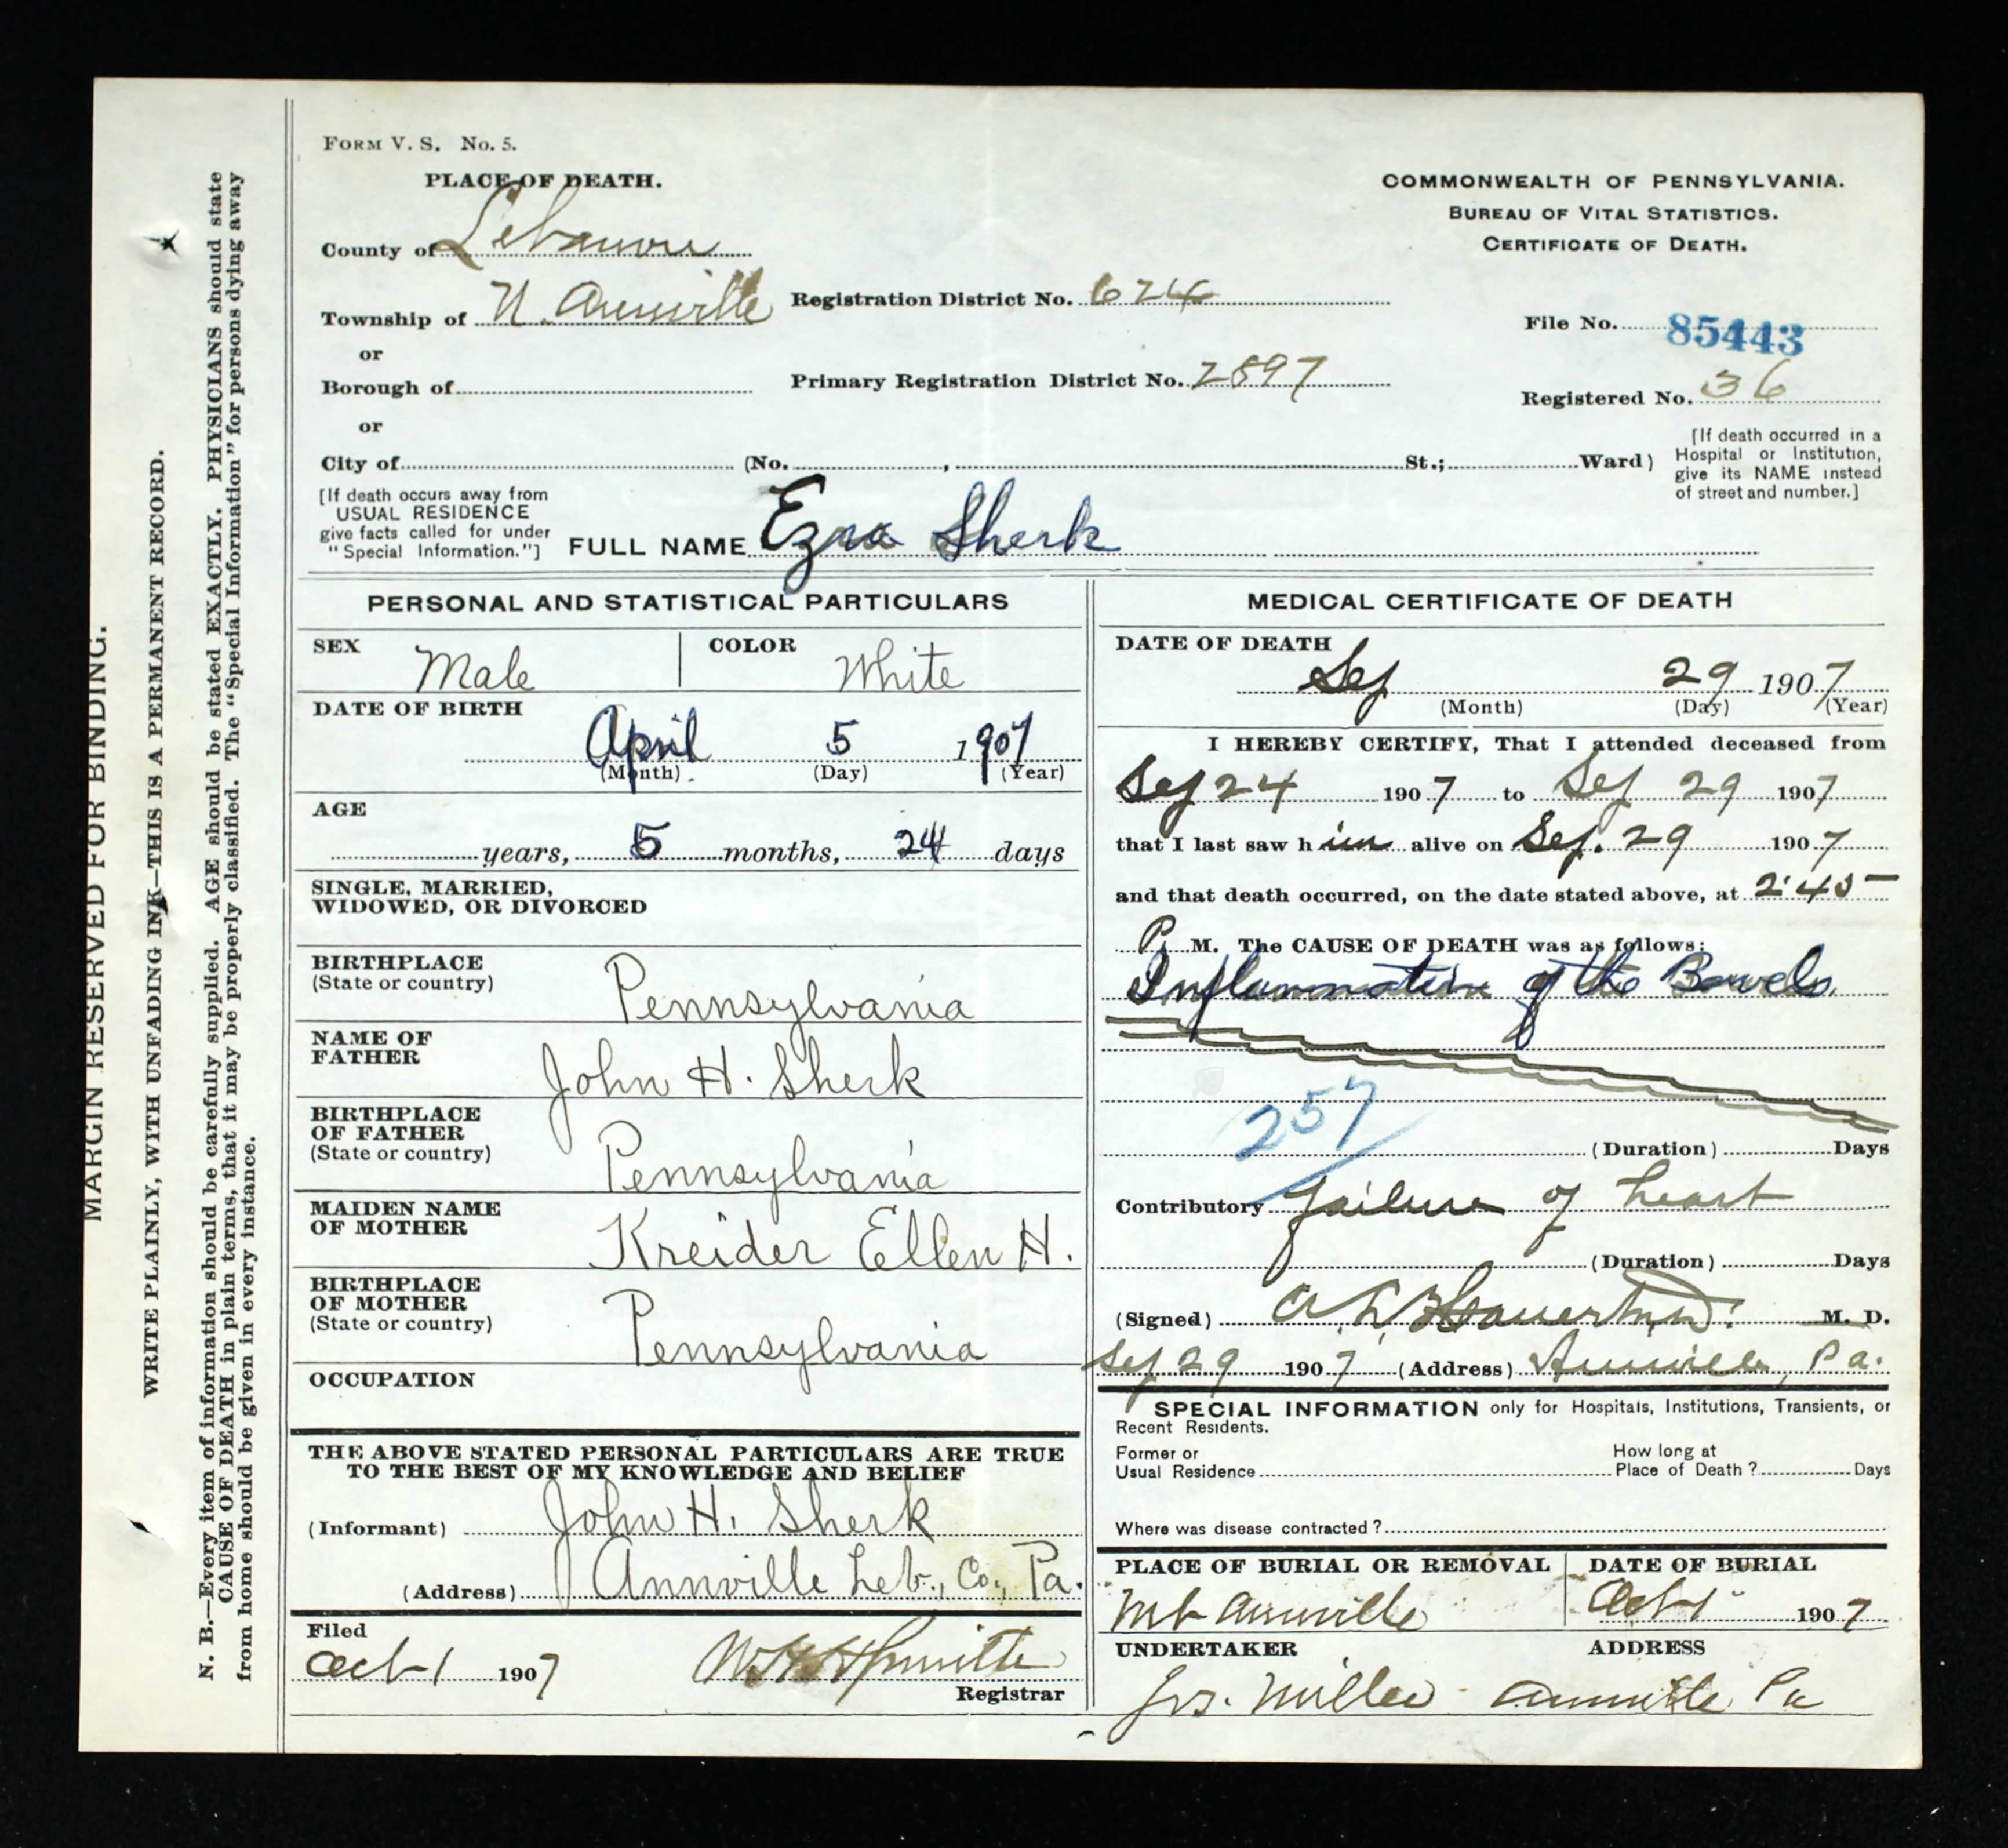 FORM V. S. No. 5.
PLACE OF DEATH.
COMMONWEALTH OF PENNSYLVANIA.
BUREAU OF VITAL STATISTICS.
CERTIFICATE OF DEATH.
County of Lebanon
Township of N. Annville
Registration District No. 624
or
Borough of
Primary Registration District No. 2897
File No. 85443
Registered No. 36
or
City of (No. , St.; Ward)
[If death occurred in a
Hospital or Institution,
give its NAME instead
of street and number.]
[If death occurs away from
USUAL RESIDENCE
give facts called for under
"Special Information."]
FULL NAME Ezra Sherk
PERSONAL AND STATISTICAL PARTICULARS
SEX Male
COLOR White
DATE OF BIRTH
April 5 1907
(Month) (Day) (Year)
AGE
years, 5 months, 24 days
SINGLE, MARRIED,
WIDOWED, OR DIVORCED
BIRTHPLACE
(State or country) Pennsylvania
NAME OF
FATHER John H. Sherk
BIRTHPLACE
OF FATHER
(State or country) Pennsylvania
MAIDEN NAME
OF MOTHER Kreider Ellen H.
BIRTHPLACE
OF MOTHER
(State or country) Pennsylvania
OCCUPATION
THE ABOVE STATED PERSONAL PARTICULARS ARE TRUE
TO THE BEST OF MY KNOWLEDGE AND BELIEF
(Informant) John H. Sherk
(Address) Annville Leb., Co., Pa.
Filed
Oct 1 1907
Registrar
MEDICAL CERTIFICATE OF DEATH
DATE OF DEATH
Sep 29 1907
(Month) (Day) (Year)
I HEREBY CERTIFY, That I attended deceased from
Sep 24 1907 to Sep 29 1907
that I last saw him alive on Sep. 29 1907
and that death occurred, on the date stated above, at 2:45
P. M. The CAUSE OF DEATH was as follows:
Inflammation of the Bowels
257
(Duration) Days
Contributory failure of heart
(Duration) Days
(Signed) M. D.
Sep 29 1907 (Address) Annville, Pa.
SPECIAL INFORMATION only for Hospitals, Institutions, Transients, or
Recent Residents.
Former or
Usual Residence
How long at
Place of Death? Days
Where was disease contracted?
PLACE OF BURIAL OR REMOVAL
Mt Annville
DATE OF BURIAL
Oct 1 1907
UNDERTAKER
Jos. Miller
ADDRESS
Annville Pa
MARGIN RESERVED FOR BINDING.
WRITE PLAINLY, WITH UNFADING INK—THIS IS A PERMANENT RECORD.
N. B.—Every item of information should be carefully supplied. AGE should be stated EXACTLY. PHYSICIANS should state
CAUSE OF DEATH in plain terms, that it may be properly classified. The "Special Information" for persons dying away
from home should be given in every instance.